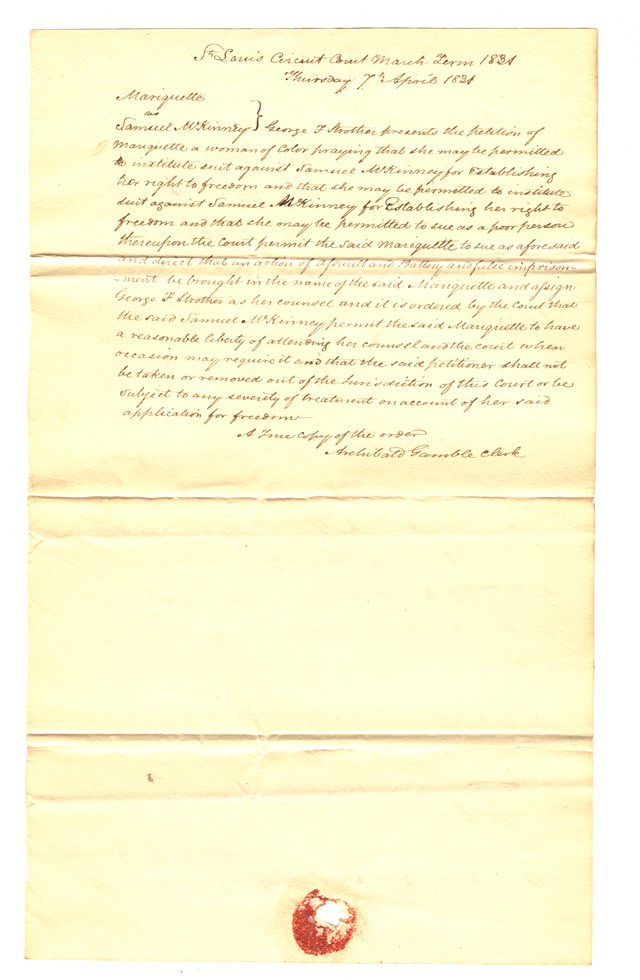 St Louis Circuit Court March Term 1831
Thursday 7th April 1831
Mariquette
vs
Samuel McKinney } George F Strother presents the petition of
Mariquette a woman of Color praying that she may be permitted
to institute suit against Samuel McKinney for Establishing
her right to freedom and that she may be permitted to institute
suit against Samuel McKinney for Establishing her right to
freedom and that she may be permitted to sue as a poor person
thereupon the Court permit the said Mariquette to sue as aforesaid
and direct that an action of assault and Battery and false imprison-
-ment be brought in the name of the said Mariquette and assign
George F Strother as her counsel and it is ordered by the Court that
the said Samuel McKinney permit the said Mariquette to have
a reasonable liberty of attending her counsel and the court when
occasion may require it and that the said petitioner shall not
be taken or removed out of the Jurisdiction of this Court or be
subject to any severity of treatment on account of her said
application for freedom
A True copy of the order
Archibald Gamble Clerk